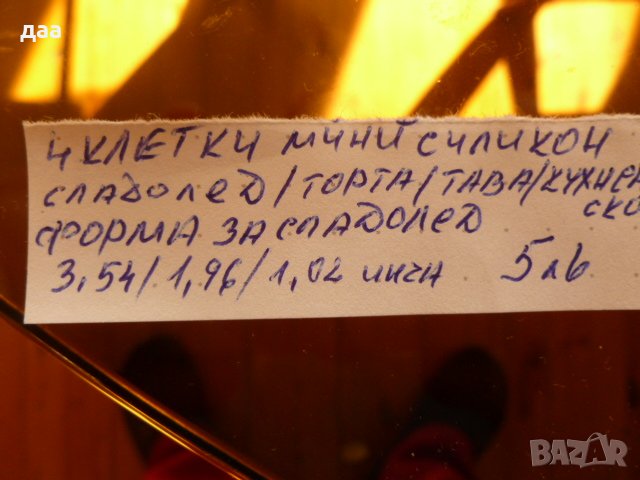 даа
4 КЛЕТКИ МИНИ СИЛИКОН
СЛАДОЛЕД/ТОРТА/ТАВА/КУХНЕН
СКО
ФОРМА ЗА СЛАДОЛЕД
3,54/1,96/1,02 ИНЧА 5 лв
BAZAR